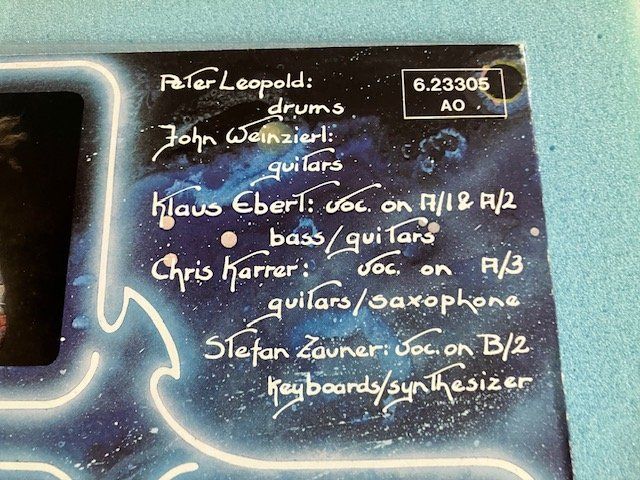 Peter Leopold:
drums
6.23305
AO
John Weinzierl:
guitars
Klaus Ebert: voc. on A/1 & A/2
bass/guitars
Chris Karrer: voc. on A/3
guitars/saxophone
Stefan Zauner: voc. on B/2
keyboards/synthesizer